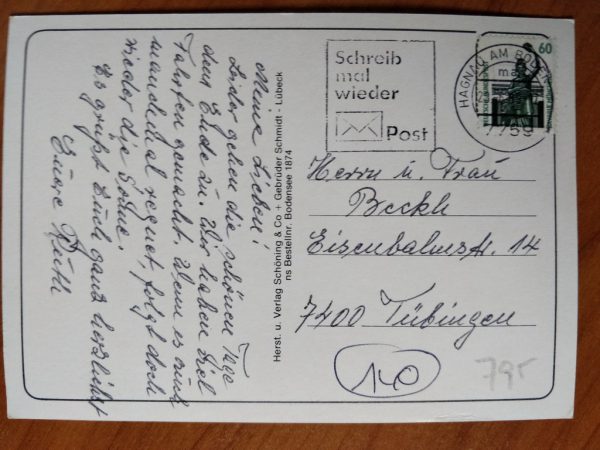 Meine Lieben!
Leider gehen die schönen Tage
dem Ende zu. Wir haben viel
Fahrten gemacht. Wenn es auch
manchmal regnet, folgt doch
wieder die Sonne.
Es grüßt Euch ganz herzlichst
Eure Ruth
Herst. u. Verlag Schöning & Co + Gebrüder Schmidt - Lübeck
ns Bestellnr. Bodensee 1874
Schreib
mal
wieder
Post
HAGNAU AM BODEN
7759
60
Herrn u. Frau
Beckh
Eisenbahnstr. 14
7400 Tübingen
140
795